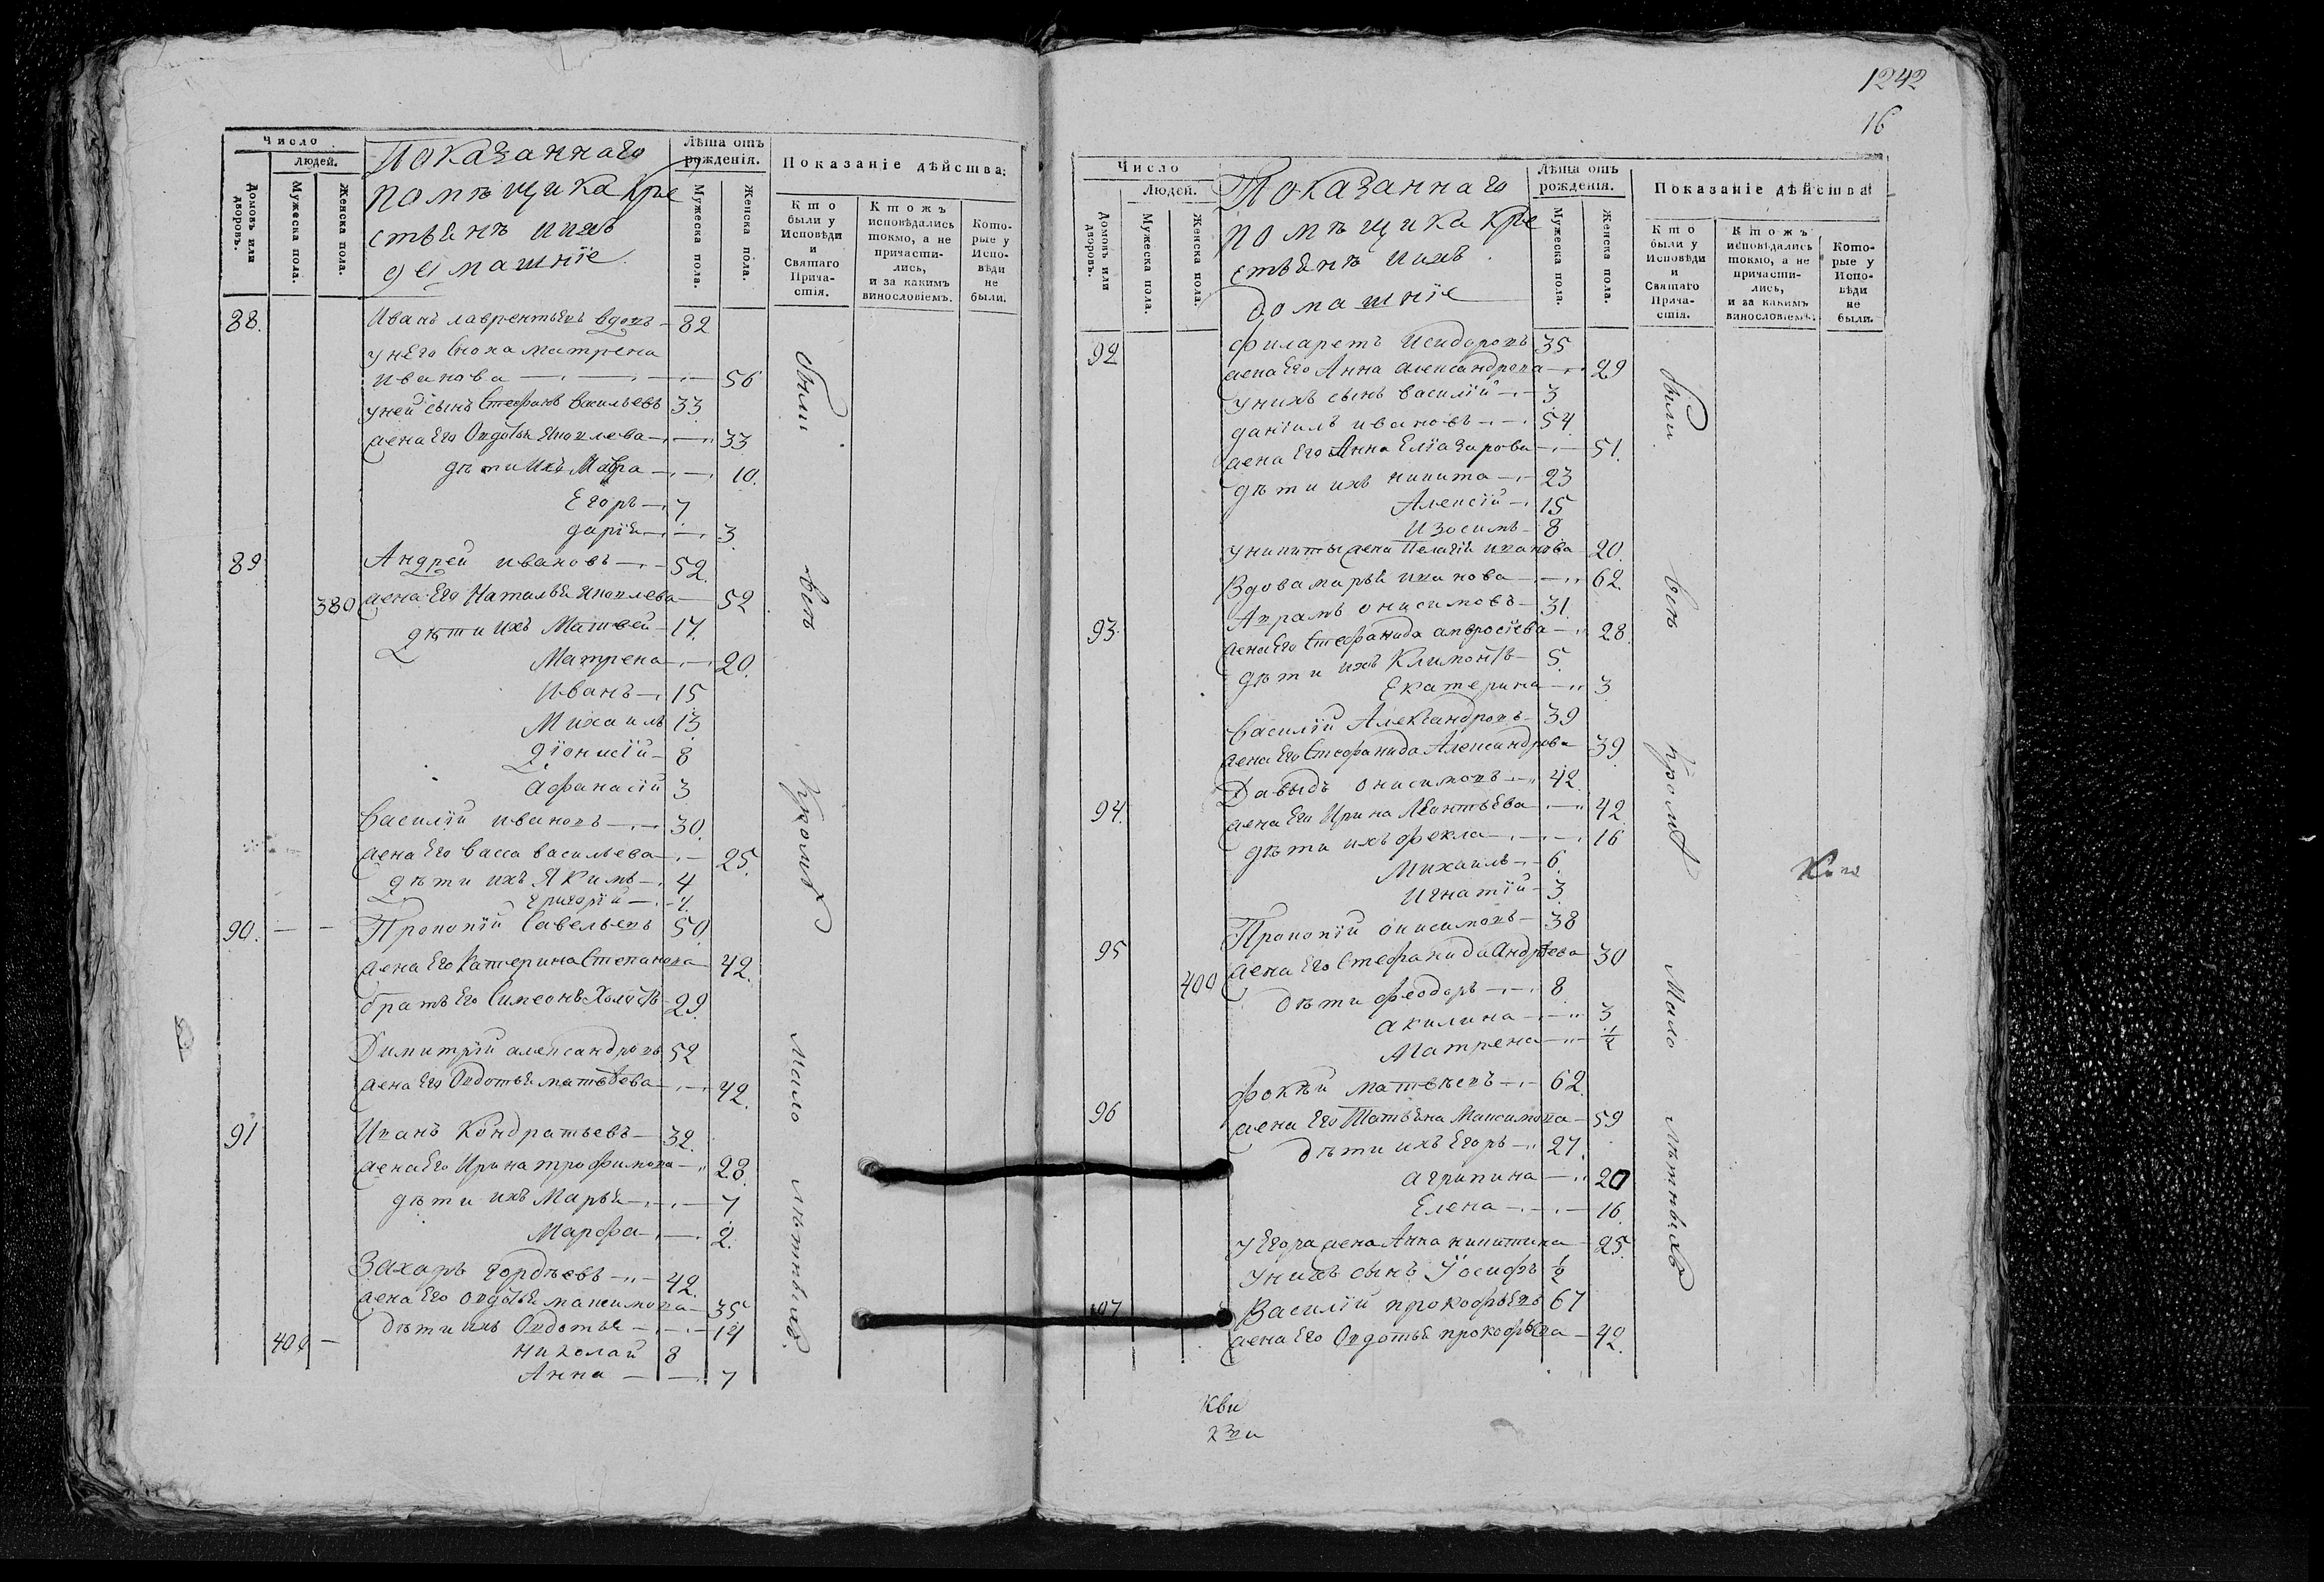 Число
людей.
Домовъ или дворовъ.
Мужеска пола.
Женска пола.
Показаннаго
помѣщика кре
стьянъ ихъ
домашнïе
Лѣта отъ рожденія.
Мужеска пола.
Женска пола.
Показаніе дѣйства:
Кто были у Исповѣди и Святаго Прича-стія.
Ктожъ исповѣдались токмо, а не причасти-лись, и за какимъ винословіемъ.
Кото-рые у Испо-вѣди не были.
88. Иванъ лаврентьевъ вдовъ 82
у него сноха матрена
иванова 56
у ней сынъ Стефанъ васильевъ 33
жена Его Овдотья Яковлева 33
дѣти ихъ Мавра 10.
Егоръ 7
дарїя 3
89 Андрей ивановъ 52.
380 жена Его Наталья Яковлева 52
дѣти ихъ Матвей 17.
Матрена 20.
Иванъ 15
Михаилъ 13
Дїонисїй 8
Афанасїй 3
Василїй ивановъ 30.
жена Его васса васильева 25.
дѣти ихъ Якимъ 4
григорїй
90. Прокопїй Савельевъ 50.
жена Его Катерина Степанова 42.
братъ Его Симеонъ Холостъ 29.
Димитрїй александровъ 52
жена Его Овдотья матвѣева 42.
91 Иванъ Кондратьевъ 32.
жена Его Ирина трофимова 28.
дѣти ихъ Марья 7
Марфа 2.
Захаръ гордѣевъ 42.
жена Его овдотья максимова 35
дѣти ихъ Овдотья 14
400 николай 8
Анна 7
были
всѣ
кромѣ
мало
лѣтныхъ.
1242
16
Число
Людей.
Домовъ или дворовъ.
Мужеска пола.
Женска пола.
Показаннаго
помѣщика кре
стьянъ ихъ
домашнїе
Лѣта отъ рожденія.
Мужеска пола.
Женска пола.
Показаніе дѣйства:
Кто были у Исповѣди и Святаго Прича-стія.
Ктожъ исповѣдались токмо, а не причасти-лись, и за какимъ винословіемъ.
Кото-рые у Испо-вѣди не были.
92 филаретъ Исидоровъ 35
жена Его Анна александрова 29
у нихъ сынъ василїй 3
данїилъ ивановъ 54
жена Его Анна Елїазарова 51.
дѣти ихъ никита 23
Алексїй 15
Изосимъ 8
у никиты жена Пелагїя иванова 20.
Вдова марья иванова 62.
93. Аврамъ онисимовъ 31.
жена Его Стефанида амвросїева 28.
дѣти ихъ Климонтъ 5.
Екатерина 3
Василїй Александровъ 39
жена Его Стефанида Александрова 39
Давыдъ онисимовъ 42.
94. жена Его Ирина Леонтьева 42
дѣти ихъ фекла 16
Михаилъ 6
Игнатїй 3
Прокопїй онисимовъ 38
95 жена Его Стефанида андрѣева 30
400 дѣти феодоръ 8
акилина 3
Матрена
фокѣй матвѣевъ 62.
96 жена Его Татьяна Максимова 59
дѣти ихъ Егоръ 27.
агрипина 20
Елена 16
у Егора жена Анна никитина 25.
у нихъ сынъ Їосифъ ½
97 Василїй прокофьевъ 67
жена Его Овдотья прокофьева 42.
были
всѣ
кромѣ
мало
лѣтныхъ